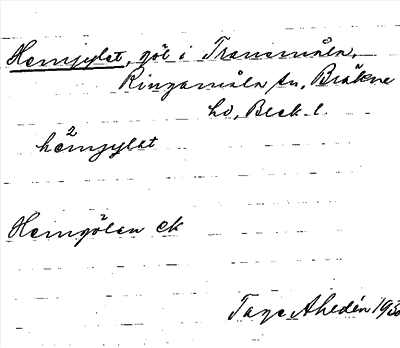 Hemjylet, göl i Transmåla,
Ringamåla sn, Bräkne
hd, Blek. l.
2
hemjylet
Hemgölen ek
Tage Ahldén 1930